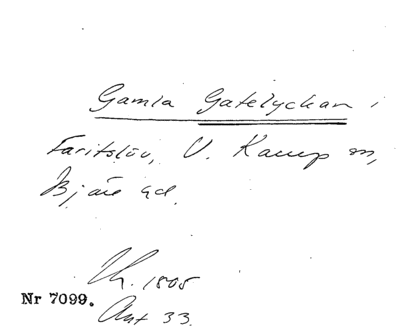 Gamla Gatelyckan i
Faritslöv, V. Karup sn,
Bjäre hd.
Lh. 1805
Nr 7099.
Akt 33.